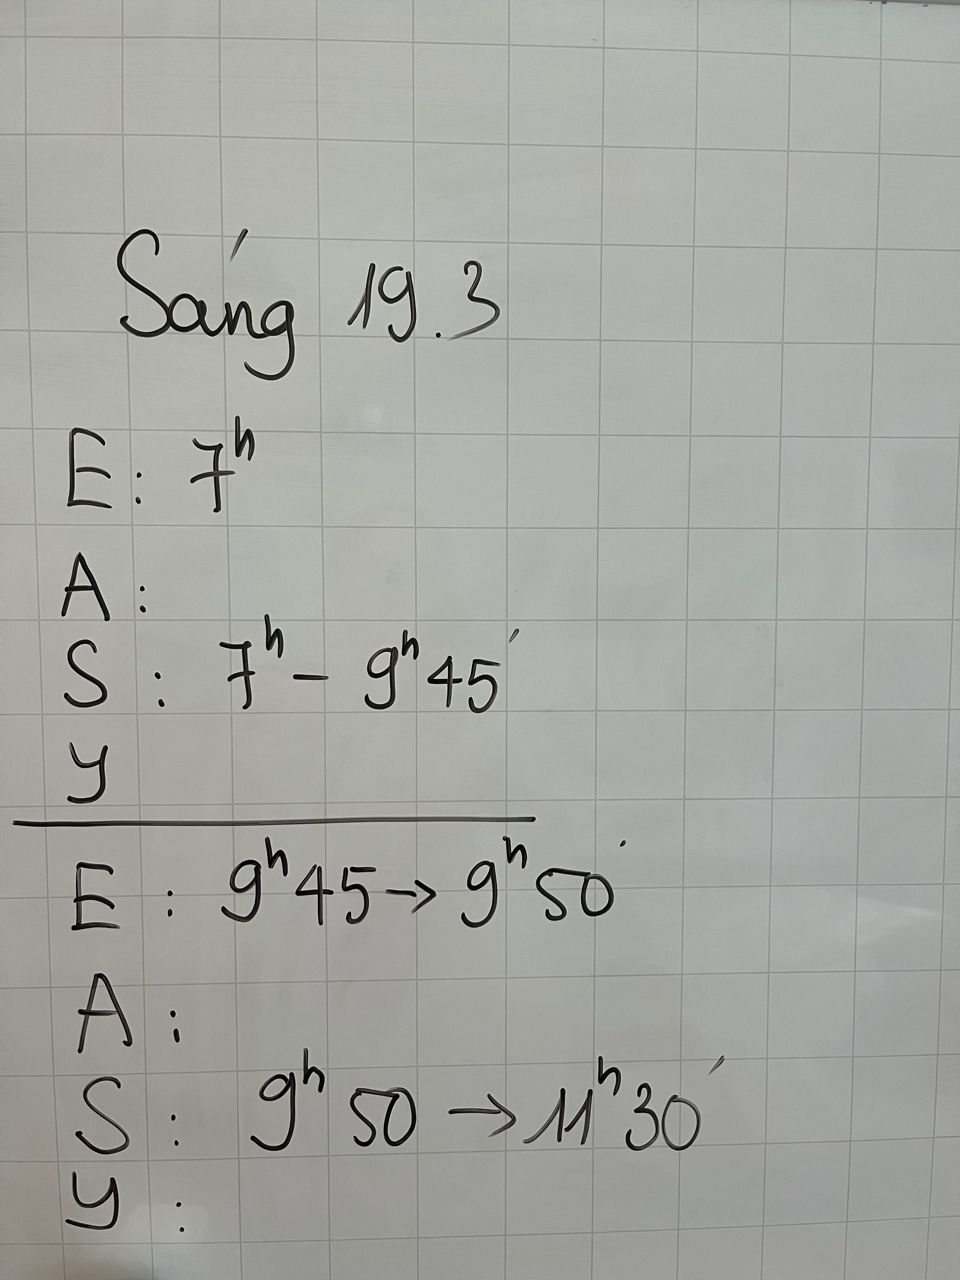 Sáng 19.3
E: 7h
A:
S: 7h - 9h45'
y
E: 9h45 → 9h50'
A:
S: 9h50 → 11h30'
y: